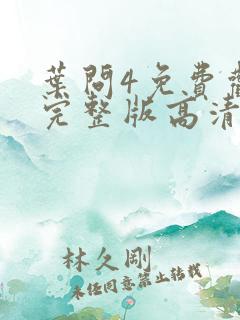 葉問4免費觀
完整版高清
林久剛
未经同意禁止转载